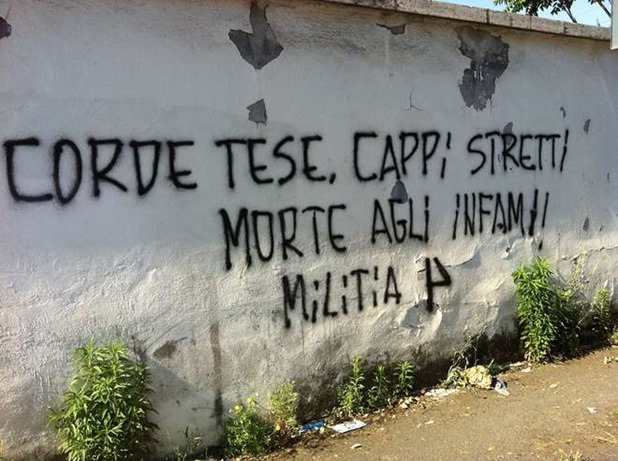 CORDE TESE, CAPPi STRETTi
MORTE AGLi iNFAMi!
MiLiTiA